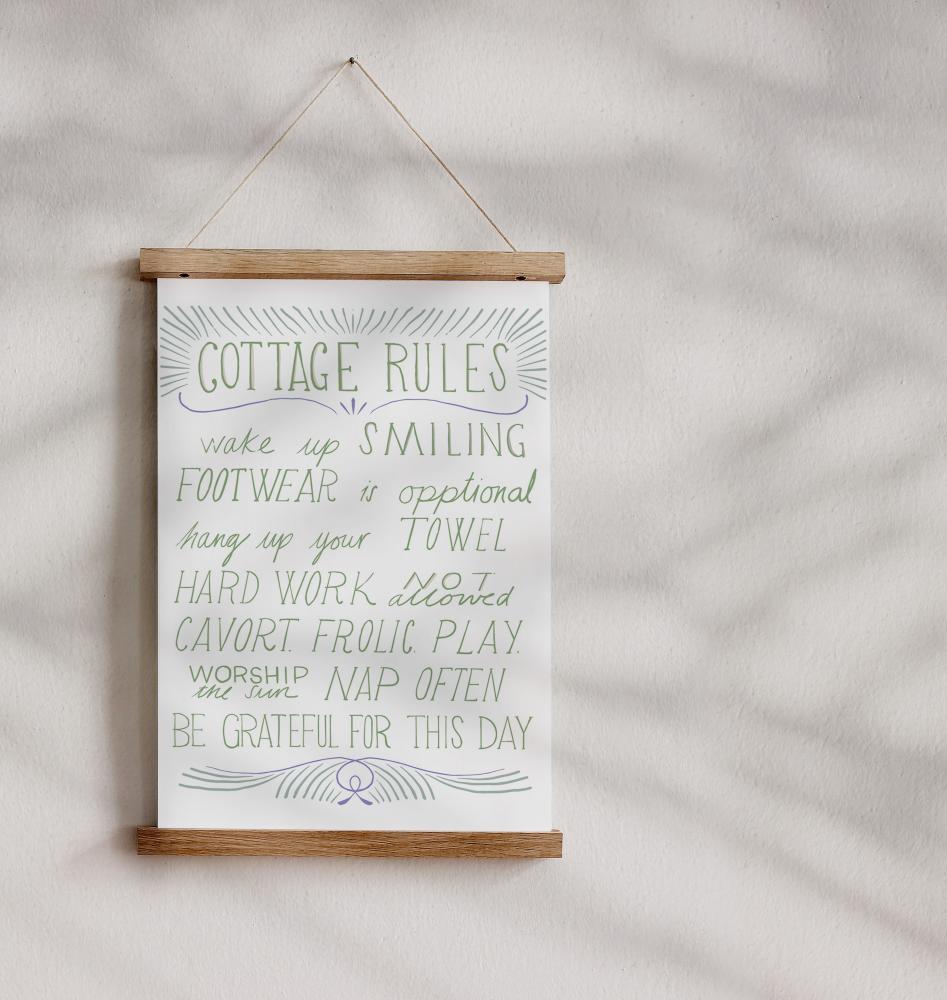 COTTAGE RULES
wake up SMILING
FOOTWEAR is opptional
hang up your TOWEL
HARD WORK NOT allowed
CAVORT. FROLIC. PLAY.
WORSHIP the sun NAP OFTEN
BE GRATEFUL FOR THIS DAY